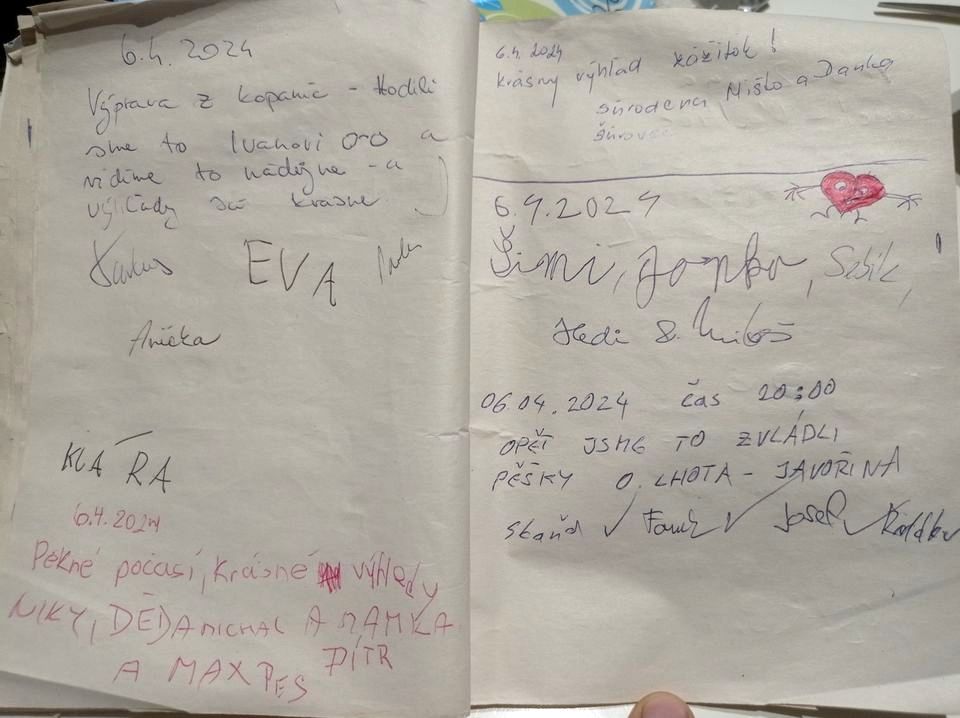 6.4.2024
Výprava z kopanic - Hodili
sme to Ivanovi oro a
vidíme to nádejne - a
výhľady sú krásne.
EVA
Anička
KLÁRA
6.4.2024
Pěkné počasí, krásné výhledy
NIKY, DĚDA MICHAL A MAMKA
A MAX PES PÍTR
6.4.2024
krásny výhľad zážitok!
súrodenci Miško a Danka
6.4.2024
Šimi, Janko, Sebik,
Hedi & Miloš
06.04.2024 čas 20:00
OPĚT JSME TO ZVLÁDLI
PĚŠKY O. LHOTA - JAVOŘINA
Josef